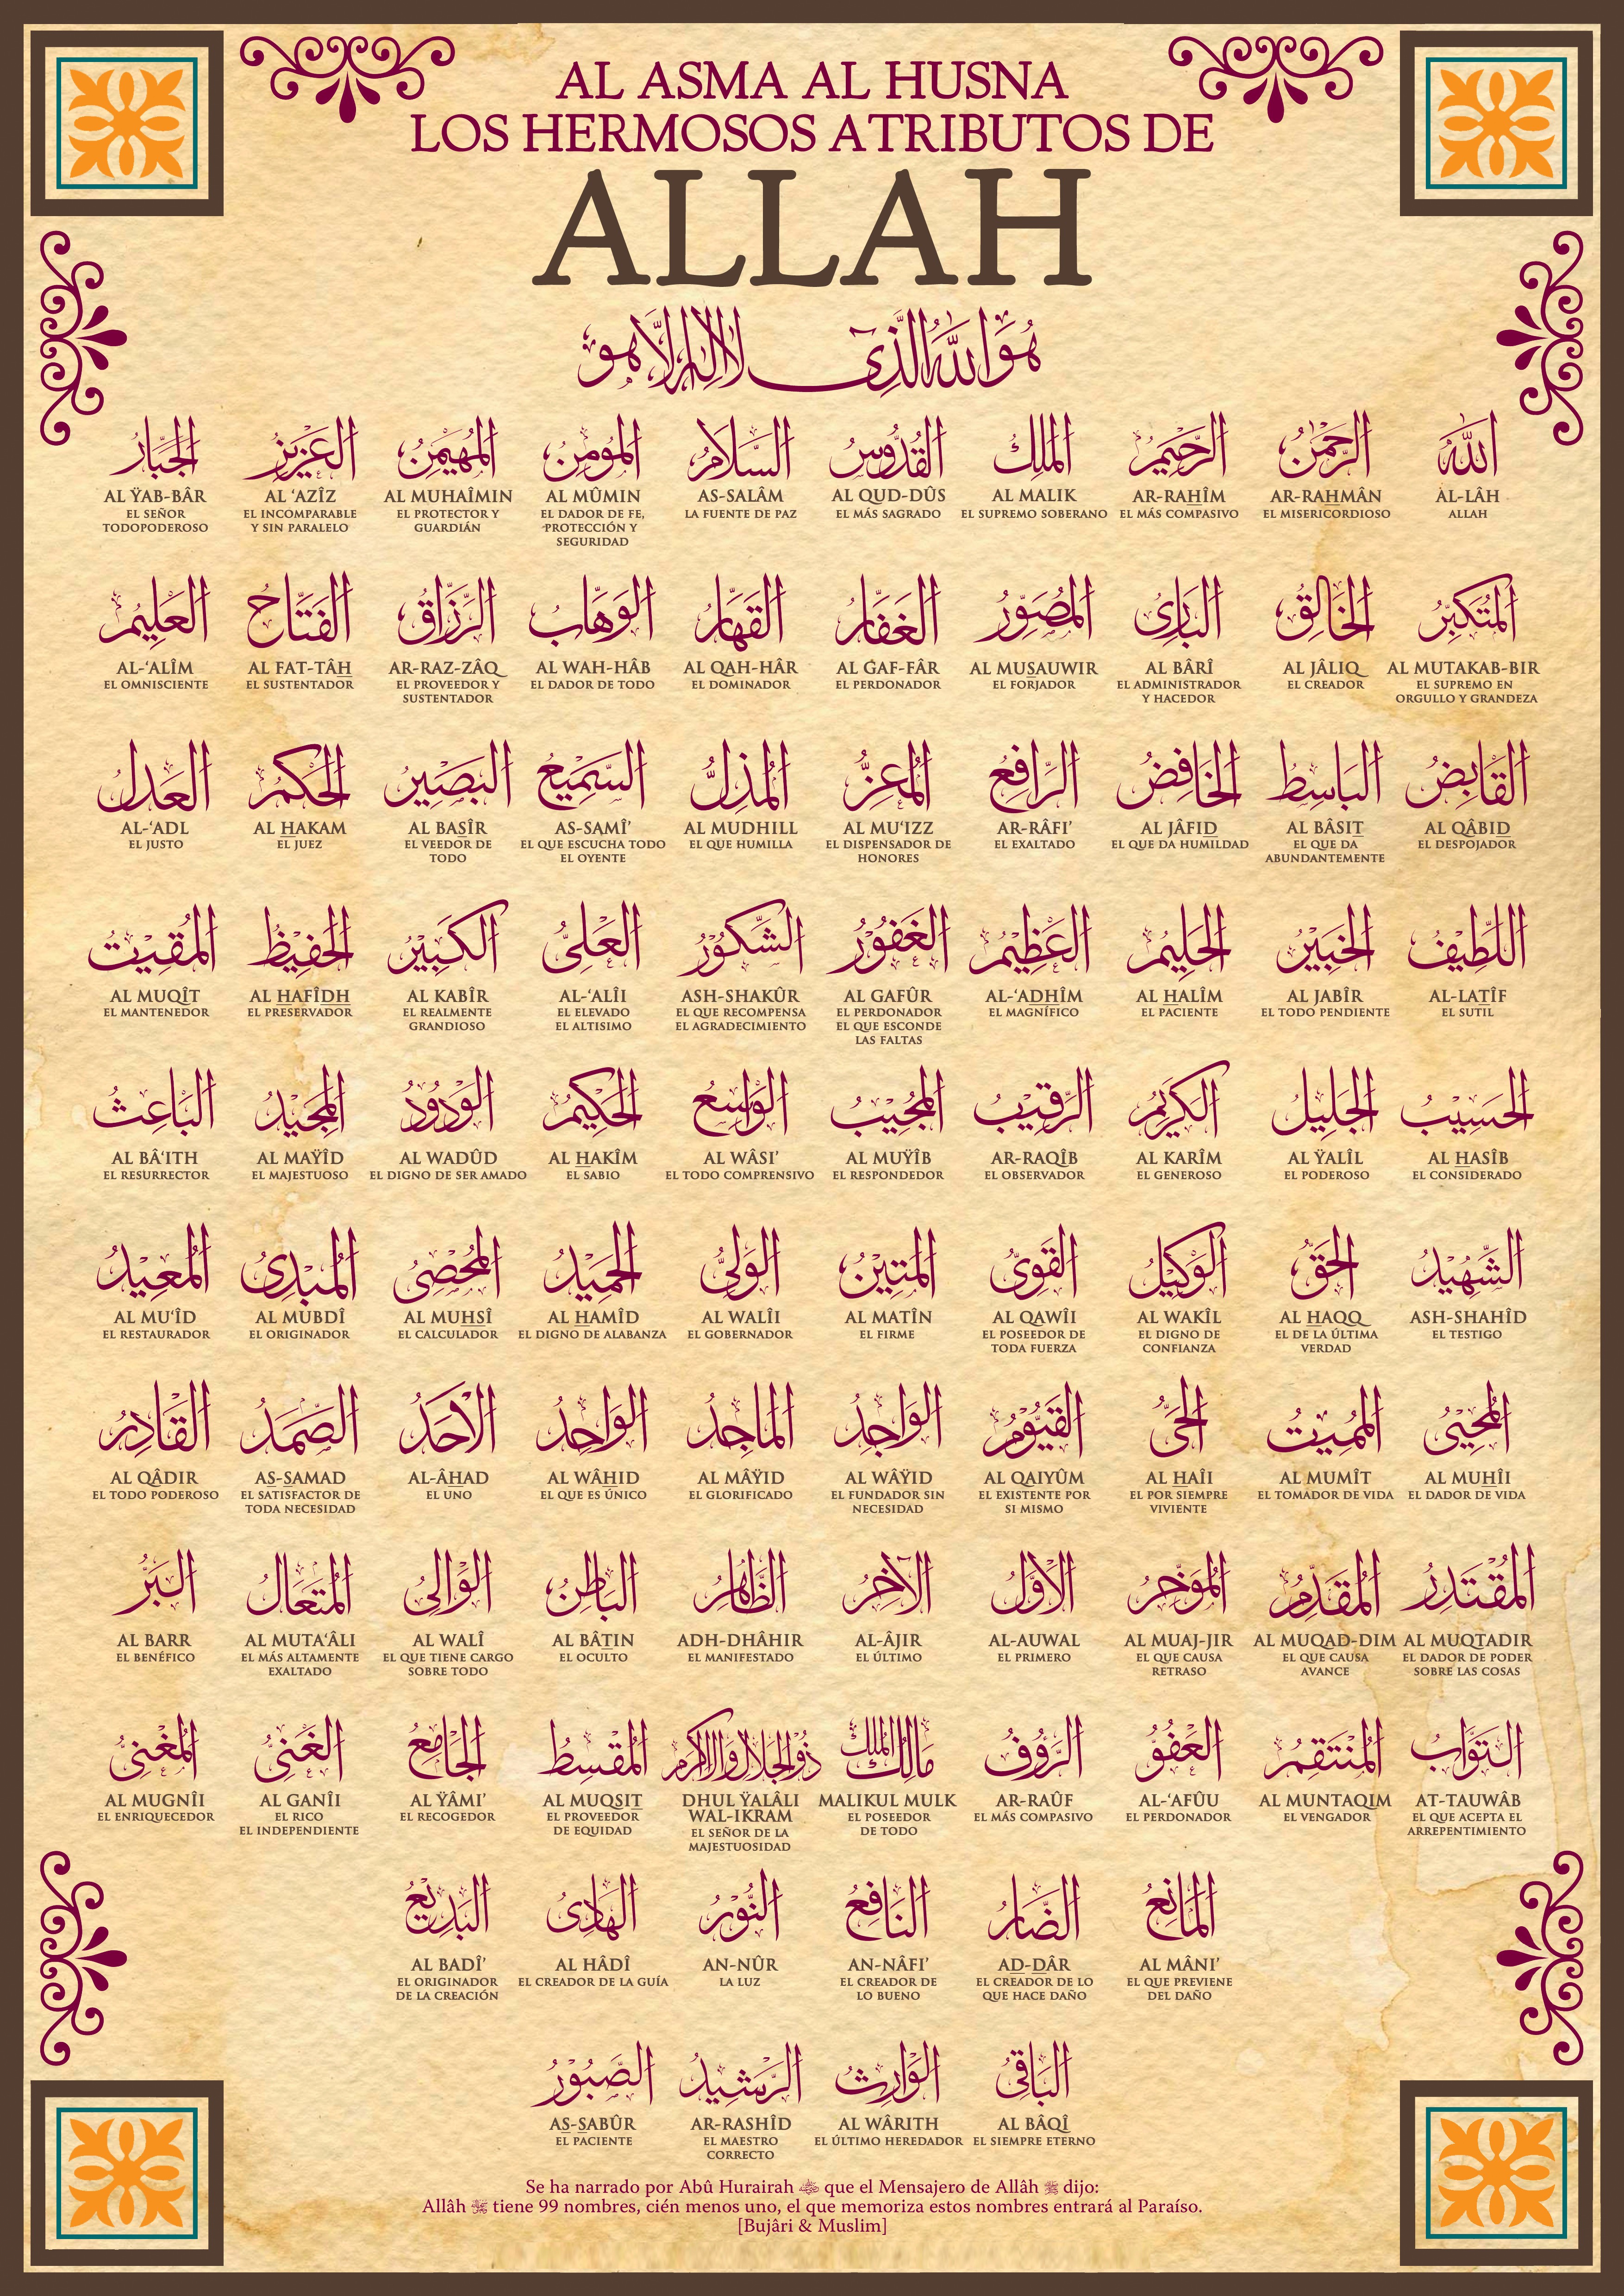 AL ASMA AL HUSNA
LOS HERMOSOS ATRIBUTOS DE
ALLAH
هُوَ اللهُ الَّذِي لا إله إلَّا هو
الله
AL-LÂH
ALLAH
الرحمن
AR-RAHMÂN
EL MISERICORDIOSO
الرحيم
AR-RAHÎM
EL MÁS COMPASIVO
الملك
AL MALIK
EL SUPREMO SOBERANO
القدوس
AL QUD-DÛS
EL MÁS SAGRADO
السلام
AS-SALÂM
LA FUENTE DE PAZ
المؤمن
AL MÛMIN
EL DADOR DE FE,
PROTECCIÓN Y
SEGURIDAD
المهيمن
AL MUHAÎMIN
EL PROTECTOR Y
GUARDIÁN
العزيز
AL ‘AZÎZ
EL INCOMPARABLE
Y SIN PARALELO
الجبار
AL ŸAB-BÂR
EL SEÑOR
TODOPODEROSO
المتكبر
AL MUTAKAB-BIR
EL SUPREMO EN
ORGULLO Y GRANDEZA
الخالق
AL JÂLIQ
EL CREADOR
البارئ
AL BÂRÎ
EL ADMINISTRADOR
Y HACEDOR
المصور
AL MUSAUWIR
EL FORJADOR
الغفار
AL GAF-FÂR
EL PERDONADOR
القهار
AL QAH-HÂR
EL DOMINADOR
الوهاب
AL WAH-HÂB
EL DADOR DE TODO
الرزاق
AR-RAZ-ZÂQ
EL PROVEEDOR Y
SUSTENTADOR
الفتاح
AL FAT-TÂH
EL SUSTENTADOR
العليم
AL-‘ALÎM
EL OMNISCIENTE
القابض
AL QÂBID
EL DESPOJADOR
الباسط
AL BÂSIT
EL QUE DA
ABUNDANTEMENTE
الخافض
AL JÂFID
EL QUE DA HUMILDAD
الرافع
AR-RÂFI’
EL EXALTADO
المعز
AL MU‘IZZ
EL DISPENSADOR DE
HONORES
المذل
AL MUDHILL
EL QUE HUMILLA
السميع
AS-SAMÎ’
EL QUE ESCUCHA TODO
EL OYENTE
البصير
AL BASÎR
EL VEEDOR DE
TODO
الحكم
AL HAKAM
EL JUEZ
العدل
AL-‘ADL
EL JUSTO
اللطيف
AL-LATÎF
EL SUTIL
الخبير
AL JABÎR
EL TODO PENDIENTE
الحليم
AL HALÎM
EL PACIENTE
العظيم
AL-‘ADHÎM
EL MAGNÍFICO
الغفور
AL GAFÛR
EL PERDONADOR
EL QUE ESCONDE
LAS FALTAS
الشكور
ASH-SHAKÛR
EL QUE RECOMPENSA
EL AGRADECIMIENTO
العلى
AL-‘ALÎI
EL ELEVADO
EL ALTISIMO
الكبير
AL KABÎR
EL REALMENTE
GRANDIOSO
الحفيظ
AL HAFÎDH
EL PRESERVADOR
المقيت
AL MUQÎT
EL MANTENEDOR
الحسيب
AL HASÎB
EL CONSIDERADO
الجليل
AL ŸALÎL
EL PODEROSO
الكريم
AL KARÎM
EL GENEROSO
الرقيب
AR-RAQÎB
EL OBSERVADOR
المجيب
AL MUŸÎB
EL RESPONDEDOR
الواسع
AL WÂSI’
EL TODO COMPRENSIVO
الحكيم
AL HAKÎM
EL SABIO
الودود
AL WADÛD
EL DIGNO DE SER AMADO
المجيد
AL MAŸÎD
EL MAJESTUOSO
الباعث
AL BÂ‘ITH
EL RESURRECTOR
الشهيد
ASH-SHAHÎD
EL TESTIGO
الحق
AL HAQQ
EL DE LA ÚLTIMA
VERDAD
الوكيل
AL WAKÎL
EL DIGNO DE
CONFIANZA
القوى
AL QAWÎI
EL POSEEDOR DE
TODA FUERZA
المتين
AL MATÎN
EL FIRME
الولى
AL WALÎI
EL GOBERNADOR
الحميد
AL HAMÎD
EL DIGNO DE ALABANZA
المحصى
AL MUHSÎ
EL CALCULADOR
المبدئ
AL MUBDÎ
EL ORIGINADOR
المعيد
AL MU‘ÎD
EL RESTAURADOR
المحيى
AL MUHÎI
EL DADOR DE VIDA
المميت
AL MUMÎT
EL TOMADOR DE VIDA
الحى
AL HAÎI
EL POR SIEMPRE
VIVIENTE
القيوم
AL QAIYÛM
EL EXISTENTE POR
SI MISMO
الواجد
AL WÂŸID
EL FUNDADOR SIN
NECESIDAD
الماجد
AL MÂŸID
EL GLORIFICADO
الواحد
AL WÂHID
EL QUE ES ÚNICO
الأحد
AL-ÂHAD
EL UNO
الصمد
AS-SAMAD
EL SATISFACTOR DE
TODA NECESIDAD
القادر
AL QÂDIR
EL TODO PODEROSO
المقتدر
AL MUQTADIR
EL DADOR DE PODER
SOBRE LAS COSAS
المقدم
AL MUQAD-DIM
EL QUE CAUSA
AVANCE
المؤخر
AL MUAJ-JIR
EL QUE CAUSA
RETRASO
الأول
AL-AUWAL
EL PRIMERO
الآخر
AL-ÂJIR
EL ÚLTIMO
الظاهر
ADH-DHÂHIR
EL MANIFESTADO
الباطن
AL BÂTIN
EL OCULTO
الوالى
AL WALÎ
EL QUE TIENE CARGO
SOBRE TODO
المتعال
AL MUTA‘ÂLI
EL MÁS ALTAMENTE
EXALTADO
البر
AL BARR
EL BENÉFICO
التواب
AT-TAUWÂB
EL QUE ACEPTA EL
ARREPENTIMIENTO
المنتقم
AL MUNTAQIM
EL VENGADOR
العفو
AL-‘AFÛU
EL PERDONADOR
الرؤوف
AR-RAÛF
EL MÁS COMPASIVO
مالك الملك
MALIKUL MULK
EL POSEEDOR
DE TODO
ذو الجلال والإكرام
DHUL ŸALÂLI
WAL-IKRAM
EL SEÑOR DE LA
MAJESTUOSIDAD
المقسط
AL MUQSIT
EL PROVEEDOR
DE EQUIDAD
الجامع
AL ŸÂMI’
EL RECOGEDOR
الغنى
AL GANÎI
EL RICO
EL INDEPENDIENTE
المغنى
AL MUGNÎI
EL ENRIQUECEDOR
المانع
AL MÂNI’
EL QUE PREVIENE
DEL DAÑO
الضار
AD-DÂR
EL CREADOR DE LO
QUE HACE DAÑO
النافع
AN-NÂFI’
EL CREADOR DE
LO BUENO
النور
AN-NÛR
LA LUZ
الهادى
AL HÂDÎ
EL CREADOR DE LA GUÍA
البديع
AL BADÎ’
EL ORIGINADOR
DE LA CREACIÓN
الباقى
AL BÂQÎ
EL SIEMPRE ETERNO
الوارث
AL WÂRITH
EL ÚLTIMO HEREDADOR
الرشيد
AR-RASHÎD
EL MAESTRO
CORRECTO
الصبور
AS-SABÛR
EL PACIENTE
Se ha narrado por Abû Hurairah que el Mensajero de Allâh ﷺ dijo:
Allâh tiene 99 nombres, cién menos uno, el que memoriza estos nombres entrará al Paraíso.
[Bujâri & Muslim]